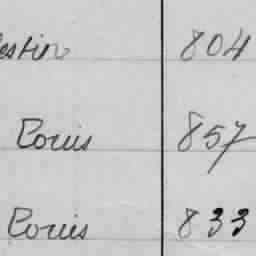 estin 804
Louis 857
Louis 833